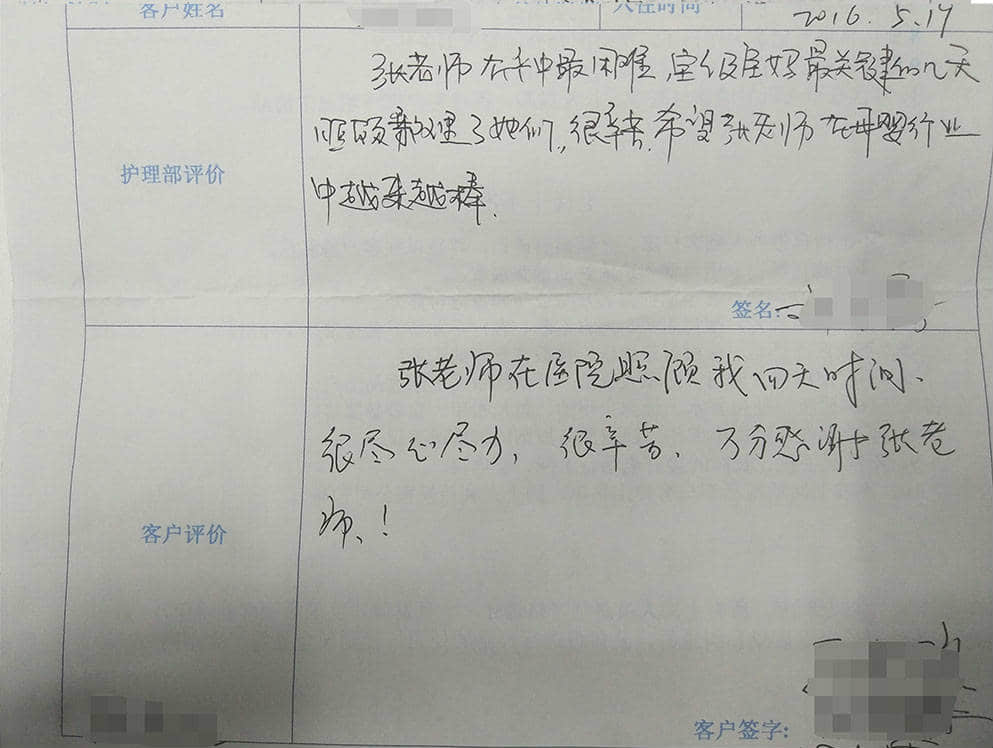 客户姓名 入住时间 2016.5.17
张老师在手中最困难,宝级宝妈最关键的几天
照顾
了她们,很辛苦.希望张老师在母婴行业
护理部评价
中越来越棒.
签名:
张老师在医院照顾我四天时间、
很尽心尽力,很辛苦、万分感谢张老
师、!
客户评价
客户签字: